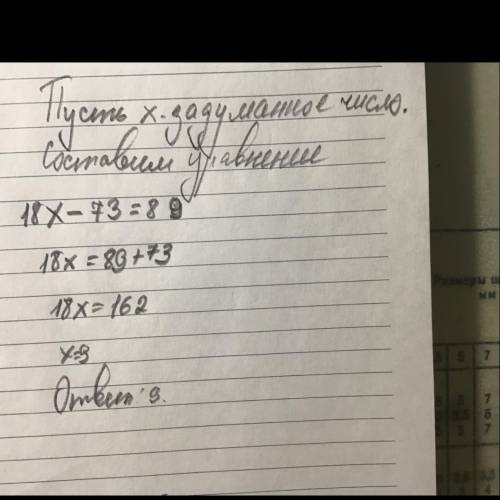 Пусть x-задуманное число.
Составим уравнение
18x-73=89
18x=89+73
18x=162
x=9
Ответ: 9.
Размеры ш
мм
5 7